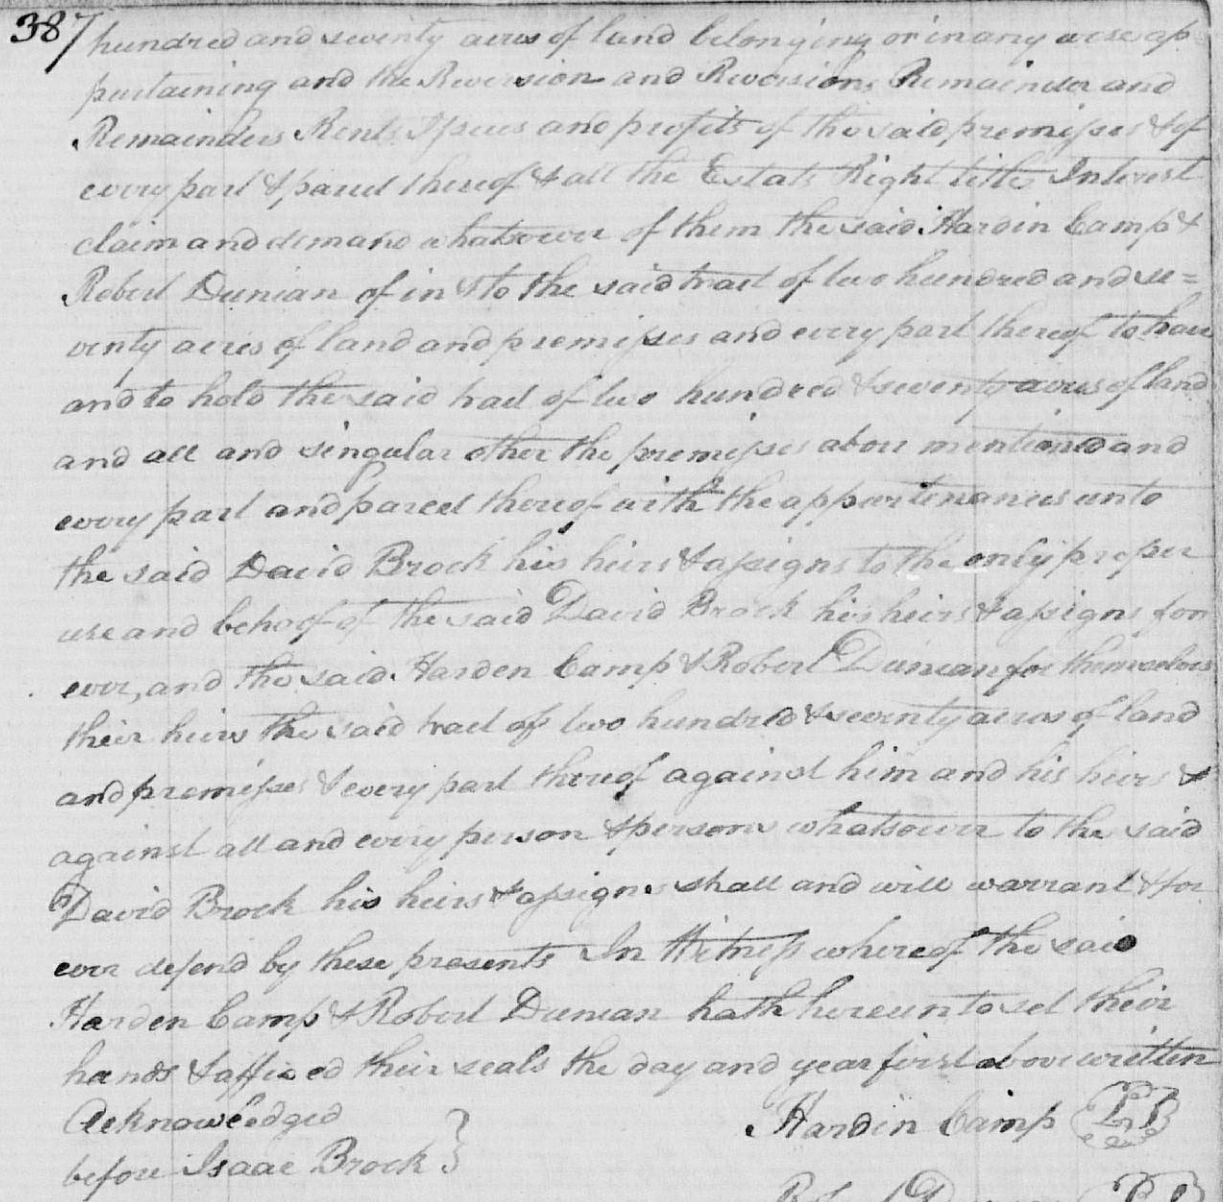 387
hundred and seventy acres of land belonging or in any wise ap
pertaining and the Reversion and Reversions Remainder and
Remainders Rents Issues and profits of the said premisses & of
every part & parcel thereof & all the Estate Right title Interest
claim and demand whatsoever of them the said Hardin Camp &
Robert Duncan of in & to the said tract of two hundred and se=
venty acres of land and premisses and every part thereof to have
and to hold the said tract of two hundred & seventy acres of land
and all and singular other the premisses above mentioned and
every part and parcel thereof with the appurtenances unto
the said David Brock his heirs & assigns to the only proper
use and behoof of the said David Brock his heirs & assigns for
ever, and the said Harden Camp & Robert Duncan for themselves
their heirs the said tract of two hundred & seventy acres of land
and premisses & every part thereof against him and his heirs &
against all and every person & persons whatsoever to the said
David Brock his heirs & assigns shall and will warrant & for
ever defend by these presents In Witness whereof the said
Harden Camp & Robert Duncan hath hereunto set their
hands & affixed their seals the day and year first above written
Acknowledged
before Isaac Brock }
Hardin Camp